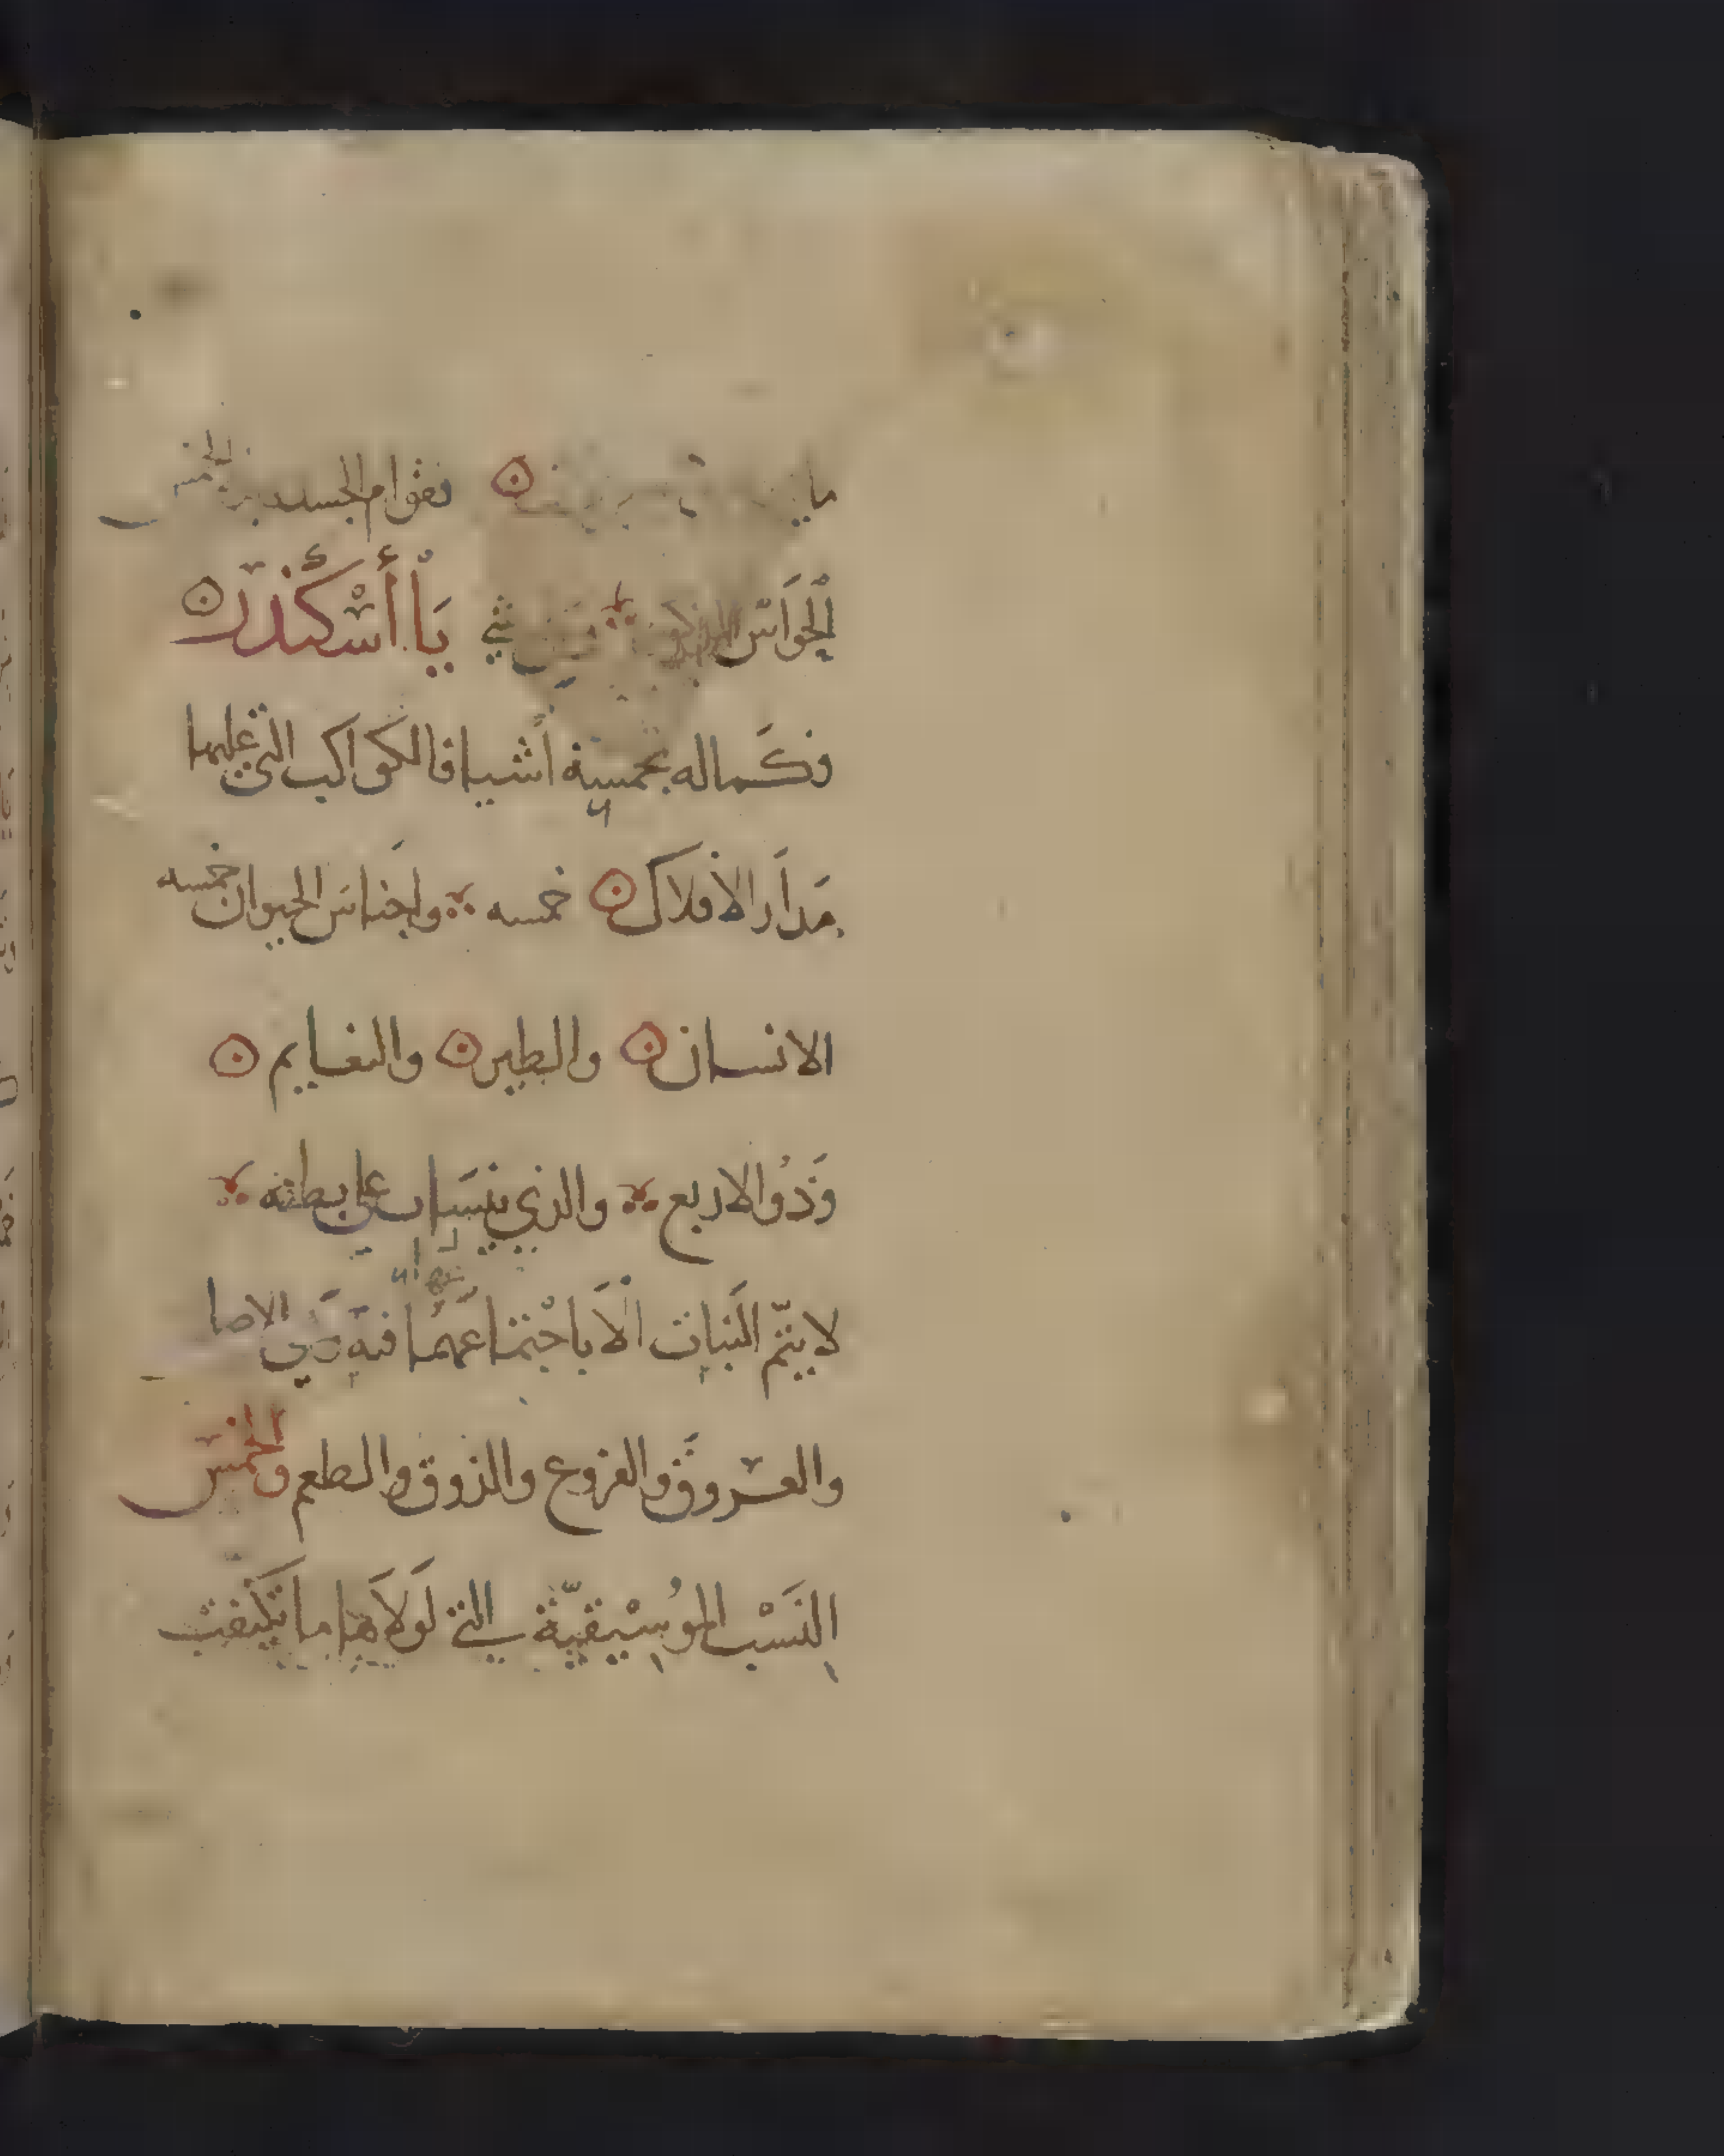 ما ۞ فقوام الجسد بهذه الخمس
الْحَوَاسّ المذكورة يَا أَسْكَنْدَر ۞
وَكَماله بخمسة أشيا فالكواكب التي عليها
مَدَار الأفلاك ۞ خمسه ؞ واجناس الحيوان خمسه
الانسان ۞ والطير ۞ والنعايم ۞
وَذُو الاربع ؞ والذي ينسَاب على بطنه ؞
لا يتمّ النَبات الَا باجْتماعهما فيه وَهي الاصل
والعروق والفروع والذوق والطعم والخمس
النَسْب الموُسيْقيّة التي لَولَاهَا ما تكيفت